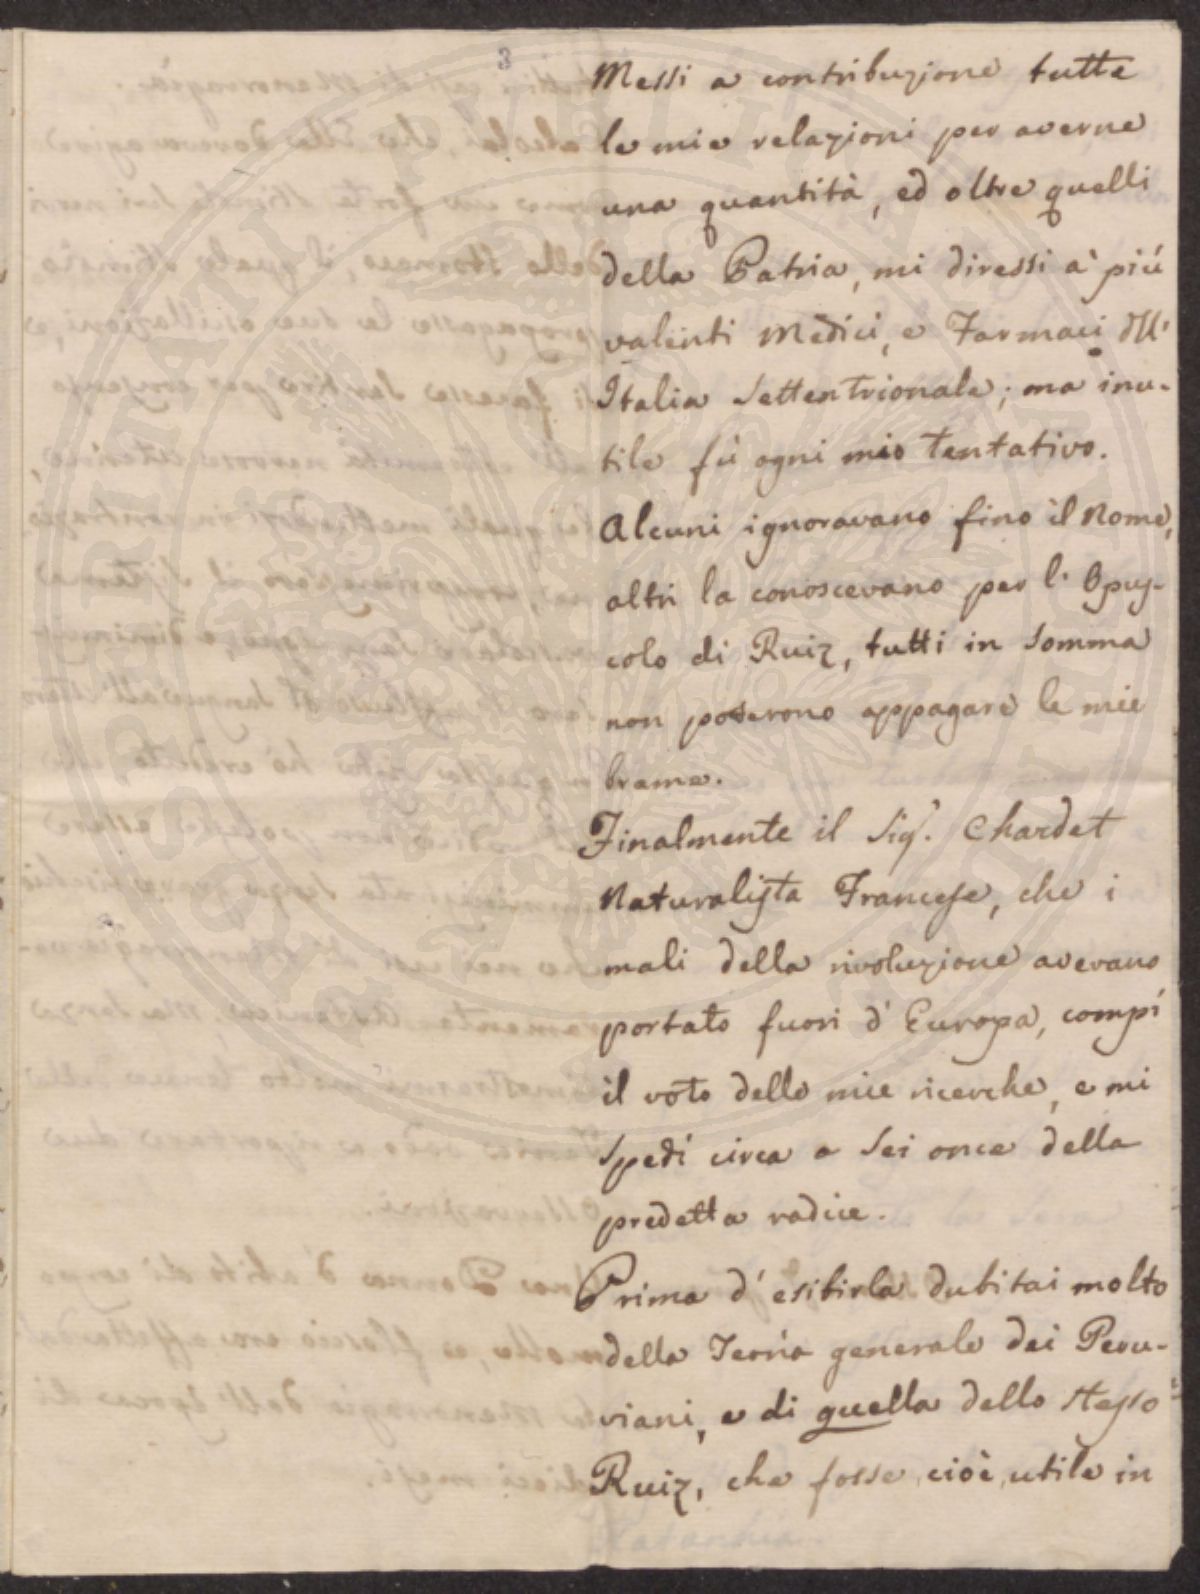 3
Messi a contribuzione tutte
le mie relazioni per averne
una quantità, ed oltre quelli
della Patria, mi diressi a' più
valenti Medici, e Farmaci dll'
Italia Settentrionale; ma inu-
tile fù ogni mio tentativo.
Alcuni ignoravano fino il Nome,
altri la conoscevano per l'Opus-
colo di Ruiz, tutti in somma
non poterono appagare le mie
brame.
Finalmente il Sigr. Chardet
Naturalista Francese, che i
mali della rivoluzione avevano
portato fuori d'Europa, compì
il voto delle mie ricerche, e mi
spedì circa a Sei once della
predetta radice.
Prima d'esibirla dubitai molto
della Teoria generale dei Peru-
viani, e di quella dello stesso
Ruiz, che fosse, cioè, utile in